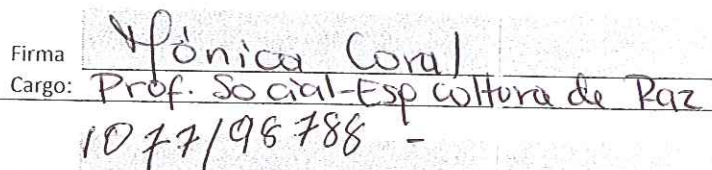 Firma Mónica Coral
Cargo: Prof. Social-Esp coltura de Paz
1077198788 -